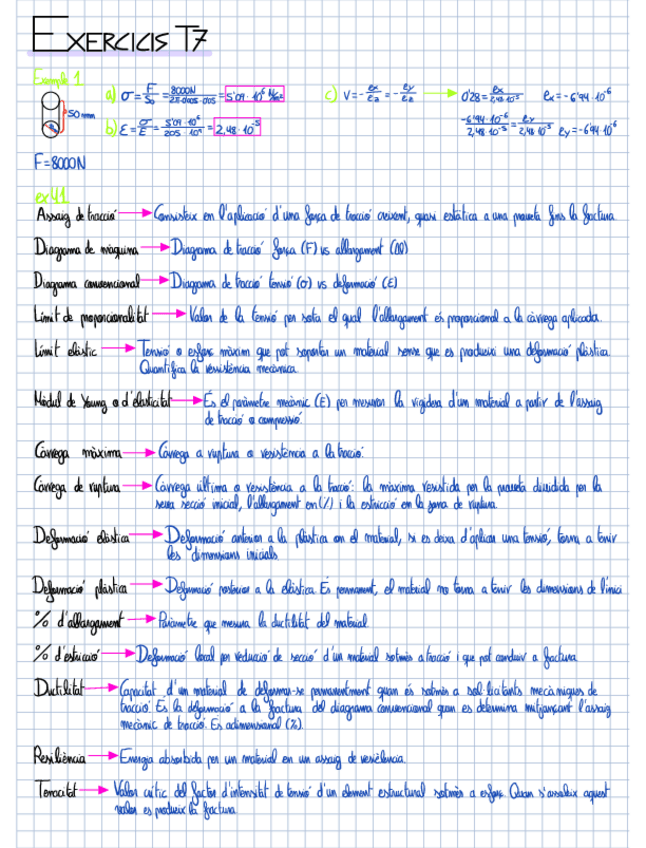 EXERCICIS T7
Example 1
50 mm
F=8000N
a) σ = F/S₀ = 8000N/2π·0'05·0'05 = 5'09·10⁶ N/m²
b) ε = σ/E = 5'09·10⁶/205·10⁹ = 2,48·10⁻⁵
c) V = -εx/εz = -εy/εz → 0'28 = εx/2,48·10⁻⁵ εx = -6'94·10⁻⁶
-6'94·10⁻⁶/2,48·10⁻⁵ = εy/2,48·10⁻⁵ εy = -6'94·10⁻⁶
ex41
Assaig de tracció → Consisteix en l'aplicació d'una força de tracció creixent, quasi estàtica a una proveta fins la factura.
Diagrama de màquina → Diagrama de tracció força (F) vs allargament (Δl)
Diagrama convencional → Diagrama de tracció tensió (σ) vs deformació (ε)
Límit de proporcionalitat → Valor de la tensió per sota el qual l'allargament és proporcional a la càrrega aplicada.
Límit elàstic → Tensió o esforç màxim que pot soportar un material sense que es produeixi una deformació plàstica.
Quantifica la resistència mecànica.
Mòdul de Young o d'elasticitat → És el paràmetre mecànic (E) per mesurar la rigidesa d'un material a partir de l'assaig
de tracció o compressió.
Càrrega màxima → Càrrega a ruptura o resistència a la tracció.
Càrrega de ruptura → Càrrega última o resistència a la tracció: la màxima resistida per la proveta dividida per la
seva secció inicial, l'allargament en (%) i la estricció en la zona de ruptura.
Deformació elàstica → Deformació anterior a la plàstica on el material, si es deixa d'aplicar una tensió, torna a tenir
les dimensions inicials.
Deformació plàstica → Deformació posterior a la elàstica. És permanent, el material no torna a tenir les dimensions de l'inici
% d'allargament → Paràmetre que mesura la ductilitat del material
% d'estricció → Deformació local per reducció de secció d'un material sotmès a tracció i que pot conduir a factura
Ductilitat → Capacitat d'un material de deformar-se permanentment quan és sotmès a sol·licitants mecàniques de
tracció. És la deformació a la factura del diagrama convencional quan es determina mitjançant l'assaig
mecànic de tracció. És adimensional (%).
Resiliència → Energia absorbida per un material en un assaig de resiliència.
Tenacitat → Valor crític del factor d'intensitat de tensió d'un element estructural sotmès a esforç. Quan s'assoleix aquest
valor es produeix la factura.